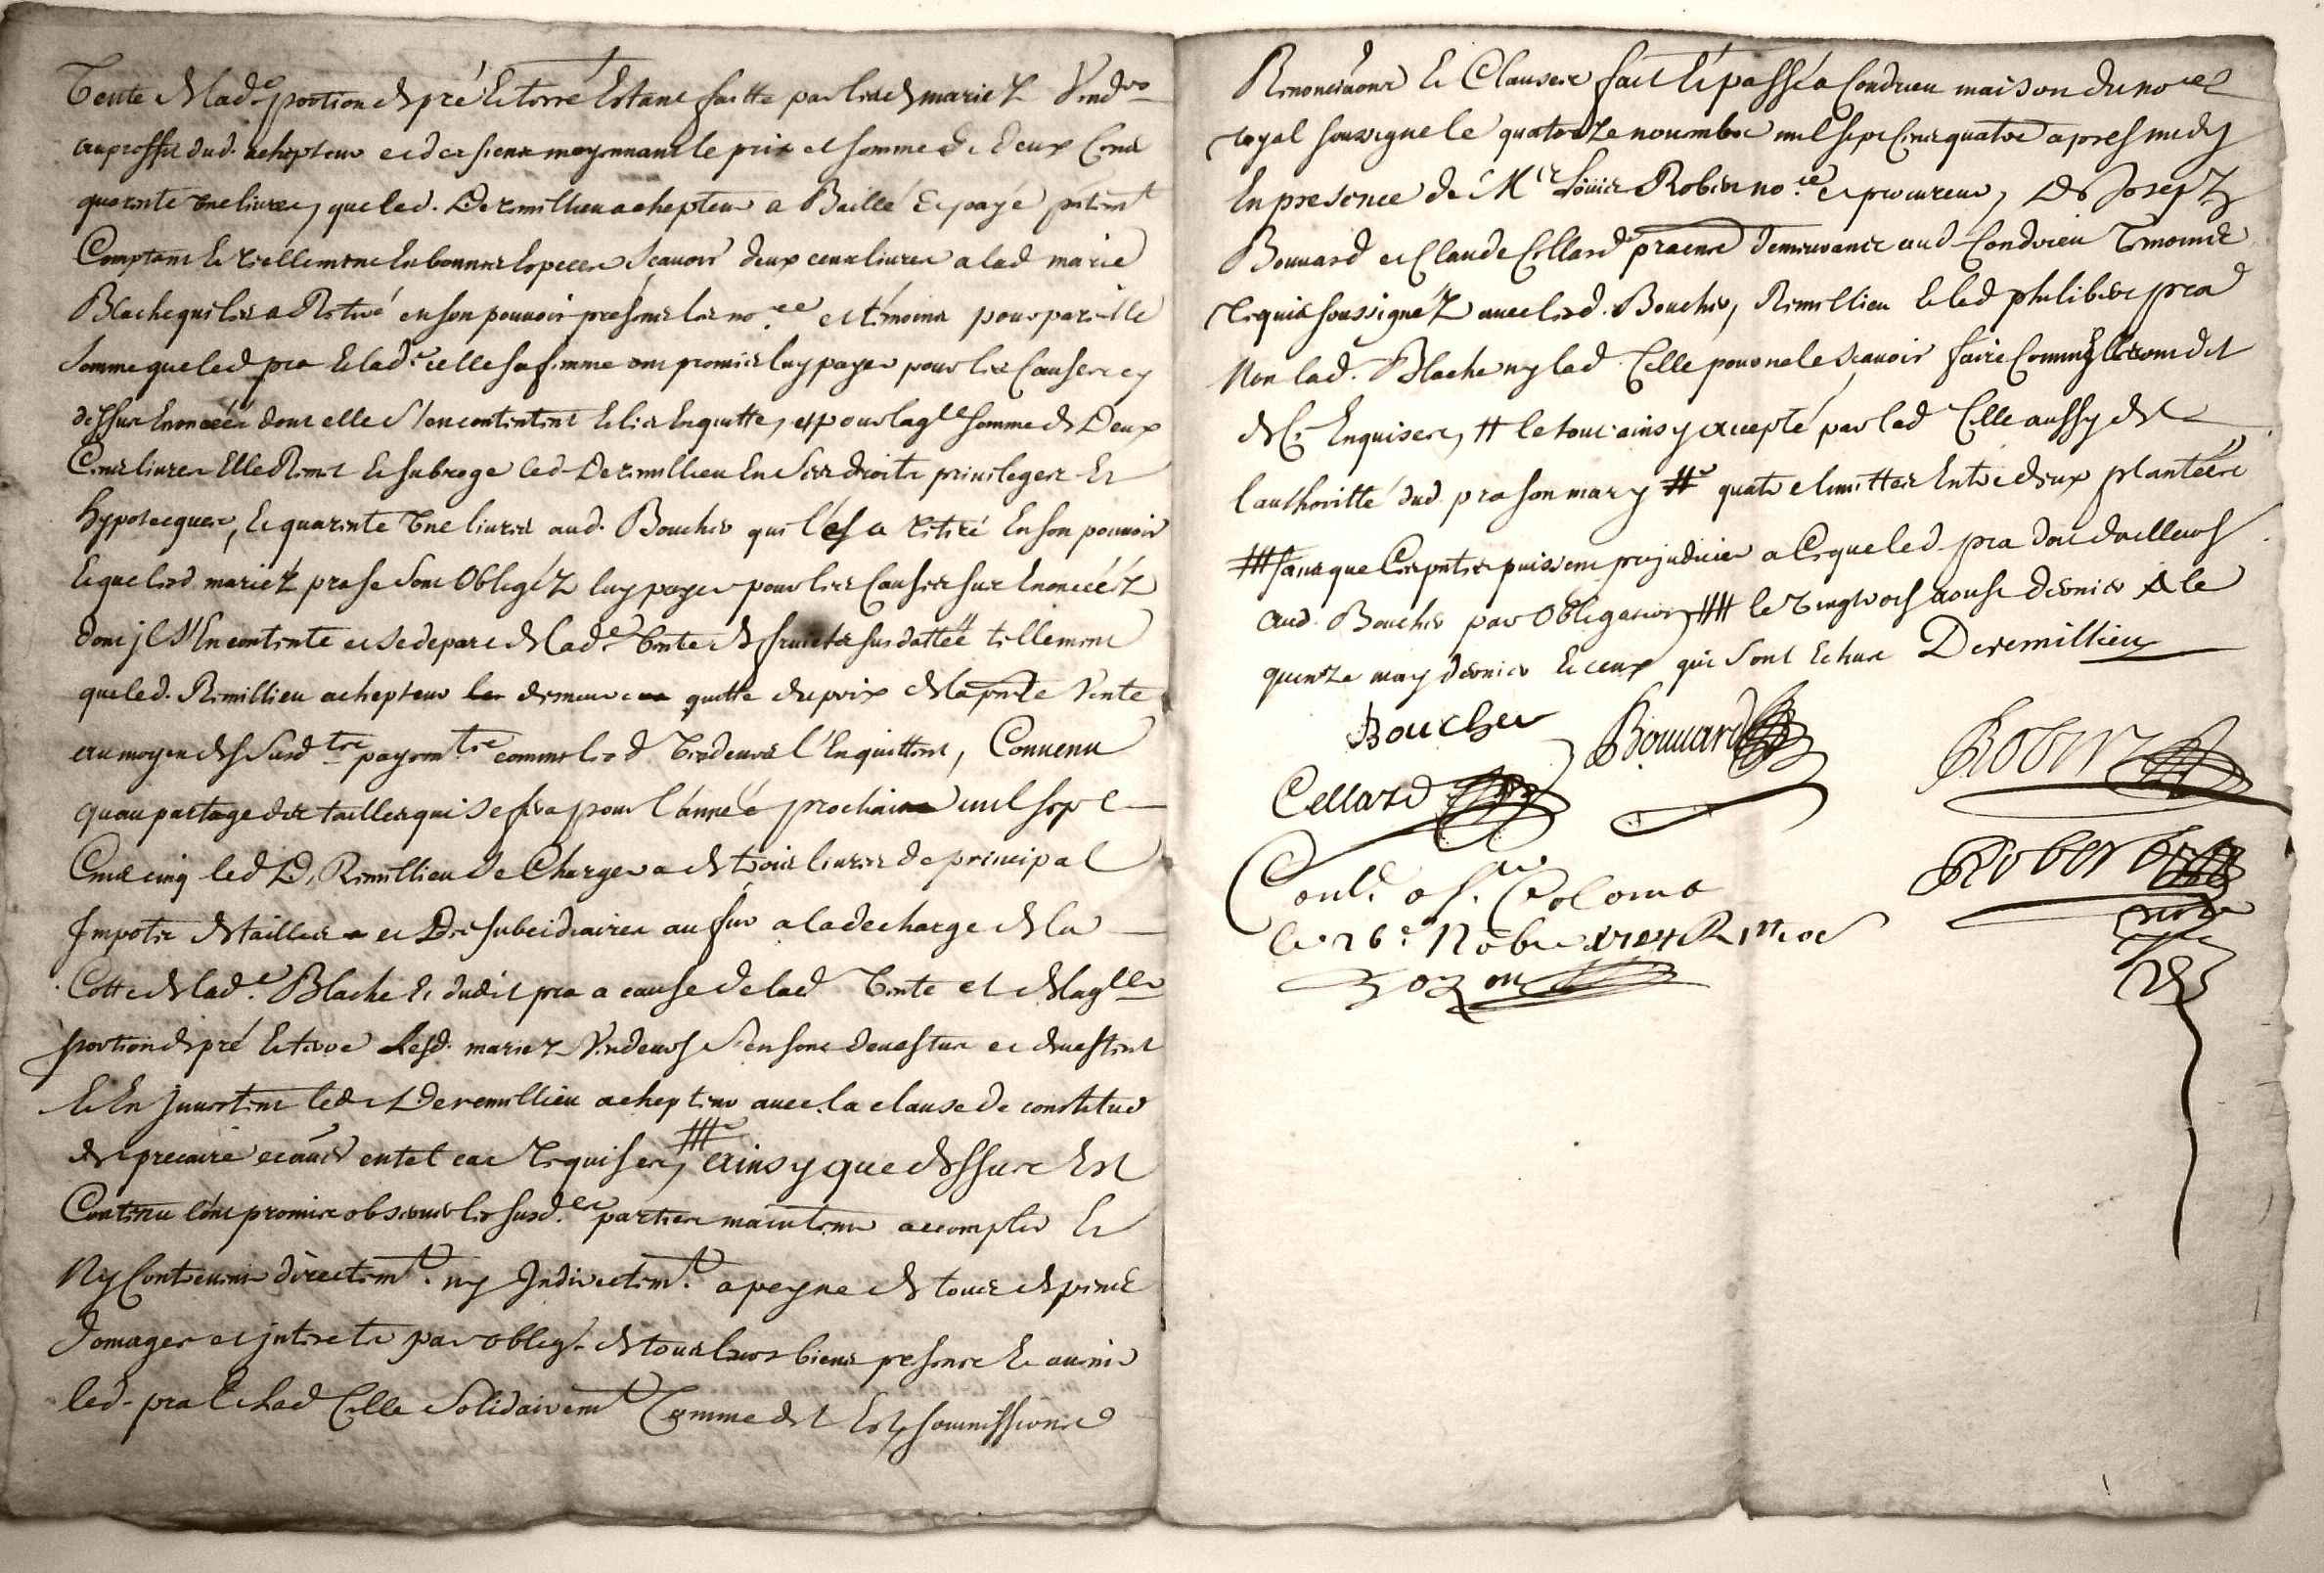 Vente de lad.e portion de pré et terre estant faitte par lesd mariez Vendrs
au proffit dud. achepteur et des siens moyennant le prix et somme de deux Cens
quarante une livres, que led. Deremillieu achepteur a Baillé et payé pntemt
Comptant et reellement en bonnes especes scavoir deux cens livres a lad marie
Blache qui les a Retiré en son pouvoir presens les nore et témoins pour pareille
somme que led pra et lad.e celle sa femme ont promis luy payer pour les Causes cy
dessus enoncéés dont elle s'en contentent et les en quitte, et pour laqlle somme de Deux
Cens livres Elle Remet et subroge led Deremillieu en ses droits privileges Et
hypotecques, et quarante une livres aud. Boucher qui les a retiré en son pouvoir
et que lesd mariéz pra se sont obligéz luy payer pour les causes sus enoncééz
dont jl s'en contente et se depart de lad.e vente de fruicts susdattéé tellement
que led. Remillieu achepteur demeure quitte du prix de la pnte Vente
au moyen des susd payemt comme lesd Vendeurs l'en quittent, Convenu
quau partage des tailles qui se fera pour l'année prochaine mil sept
Cens cinq led D, Remillieu se Chargera de trois livres de principal
Impots de tailles et Des subcidiaires au fur a la decharge de la
Cotte de lad.e Blache et dudit pra a cause de lad Vente et de laqlle
portion de pré et terre Lesd. mariez Vendeurs s'en sont devestus et devestent
et en jnvestent led Deremillieu achepteur avec la clause de constitut
de precaire et au entel cas requises, ### ainsy que dessus Est
Contenu l'ont promis observer les susd.es parties maintenir accomplir et
Ny Contrevenir directemt. ny Indirectemt. a peyne de tous despens
domages et jnterets par oblig. de tous leurs biens presens et avenir
led. pra et Lad Celle solidairemt Comme dit Est, soumissions
Renonciaons et Clauses fait et passé a Condrieu maison du nore
royal soussigné le quatorze novembre mil sept Cens quatre apres midy
En presence de Mre Loüis Robert no.re et procureur, Sr Joseph
Bouvard et Claude Cellard praens demeurants aud Condrieu Temoins
requis soussignéz avec lesd. Boucher, Remillieu et led philibert pra
Non lad. Blache ny lad Celle pour ne le scavoir faire Comme elles ont dit
de Ce Enquises, # le tout ainsy accepté par lad Celle aussy de
l'authoritté dud pra son mary # quatre limittes Entre deux plantéés
### sans que Ces pntes puissent prejudicier a Ce que led pra doit dailleurs
aud. Boucher par obligation #### le vingtrois aoust dernier & le
quinze may dernier et ceux qui sont Echus Deremillieu
Boucher Bouuard Robert
Cellard Robert
Conl.é a St. Colomb
le 26e Nobre 1704 R
nore